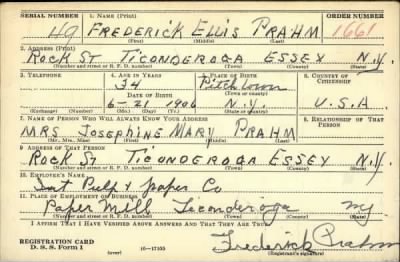 SERIAL NUMBER 1. NAME (Print) ORDER NUMBER
49 FREDERICK ELLIS PRAHM 1661
(First) (Middle) (Last)
2. ADDRESS (Print)
ROCK ST TICONDEROGA ESSEX N.Y.
(Number and street or R. F. D. number) (Town) (County) (State)
3. TELEPHONE 4. AGE IN YEARS 5. PLACE OF BIRTH 6. COUNTRY OF CITIZENSHIP
34
DATE OF BIRTH (Town or county)
6-21 1906 N.Y. U.S.A.
(Exchange) (Number) (Mo.) (Day) (Yr.) (State or country)
7. NAME OF PERSON WHO WILL ALWAYS KNOW YOUR ADDRESS 8. RELATIONSHIP OF THAT PERSON
MRS JOSEPHINE MARY PRAHM
(Mr., Mrs., Miss) (First) (Middle) (Last)
9. ADDRESS OF THAT PERSON
ROCK ST TICONDEROGA ESSEX N.Y.
(Number and street or R. F. D. number) (Town) (County) (State)
10. EMPLOYER'S NAME
Int Pulp & Paper Co
11. PLACE OF EMPLOYMENT OR BUSINESS
Paper Mill Ticonderoga NY
(Number and street or R. F. D. number) (Town) (County) (State)
I AFFIRM THAT I HAVE VERIFIED ABOVE ANSWERS AND THAT THEY ARE TRUE.
REGISTRATION CARD
D. S. S. Form 1 (over) 16-17105 Frederick Prahm
(Registrant's signature)